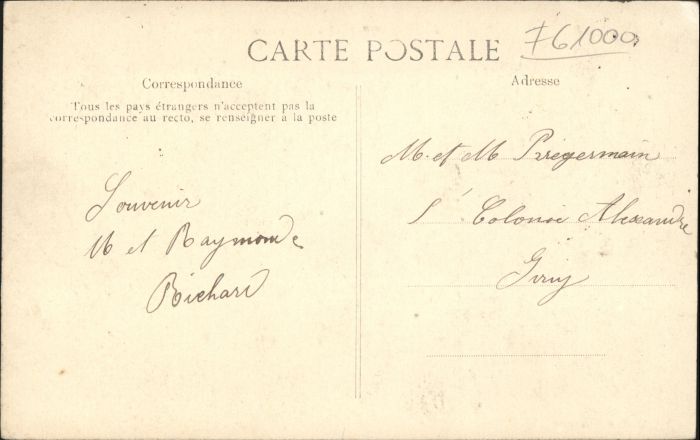 CARTE POSTALE
761000
Correspondance
Tous les pays étrangers n'acceptent pas la
correspondance au recto, se renseigner à la poste
Souvenir
M et Raymonde
Richard
Adresse
M. et M Prégermain
Colonie Alexandre